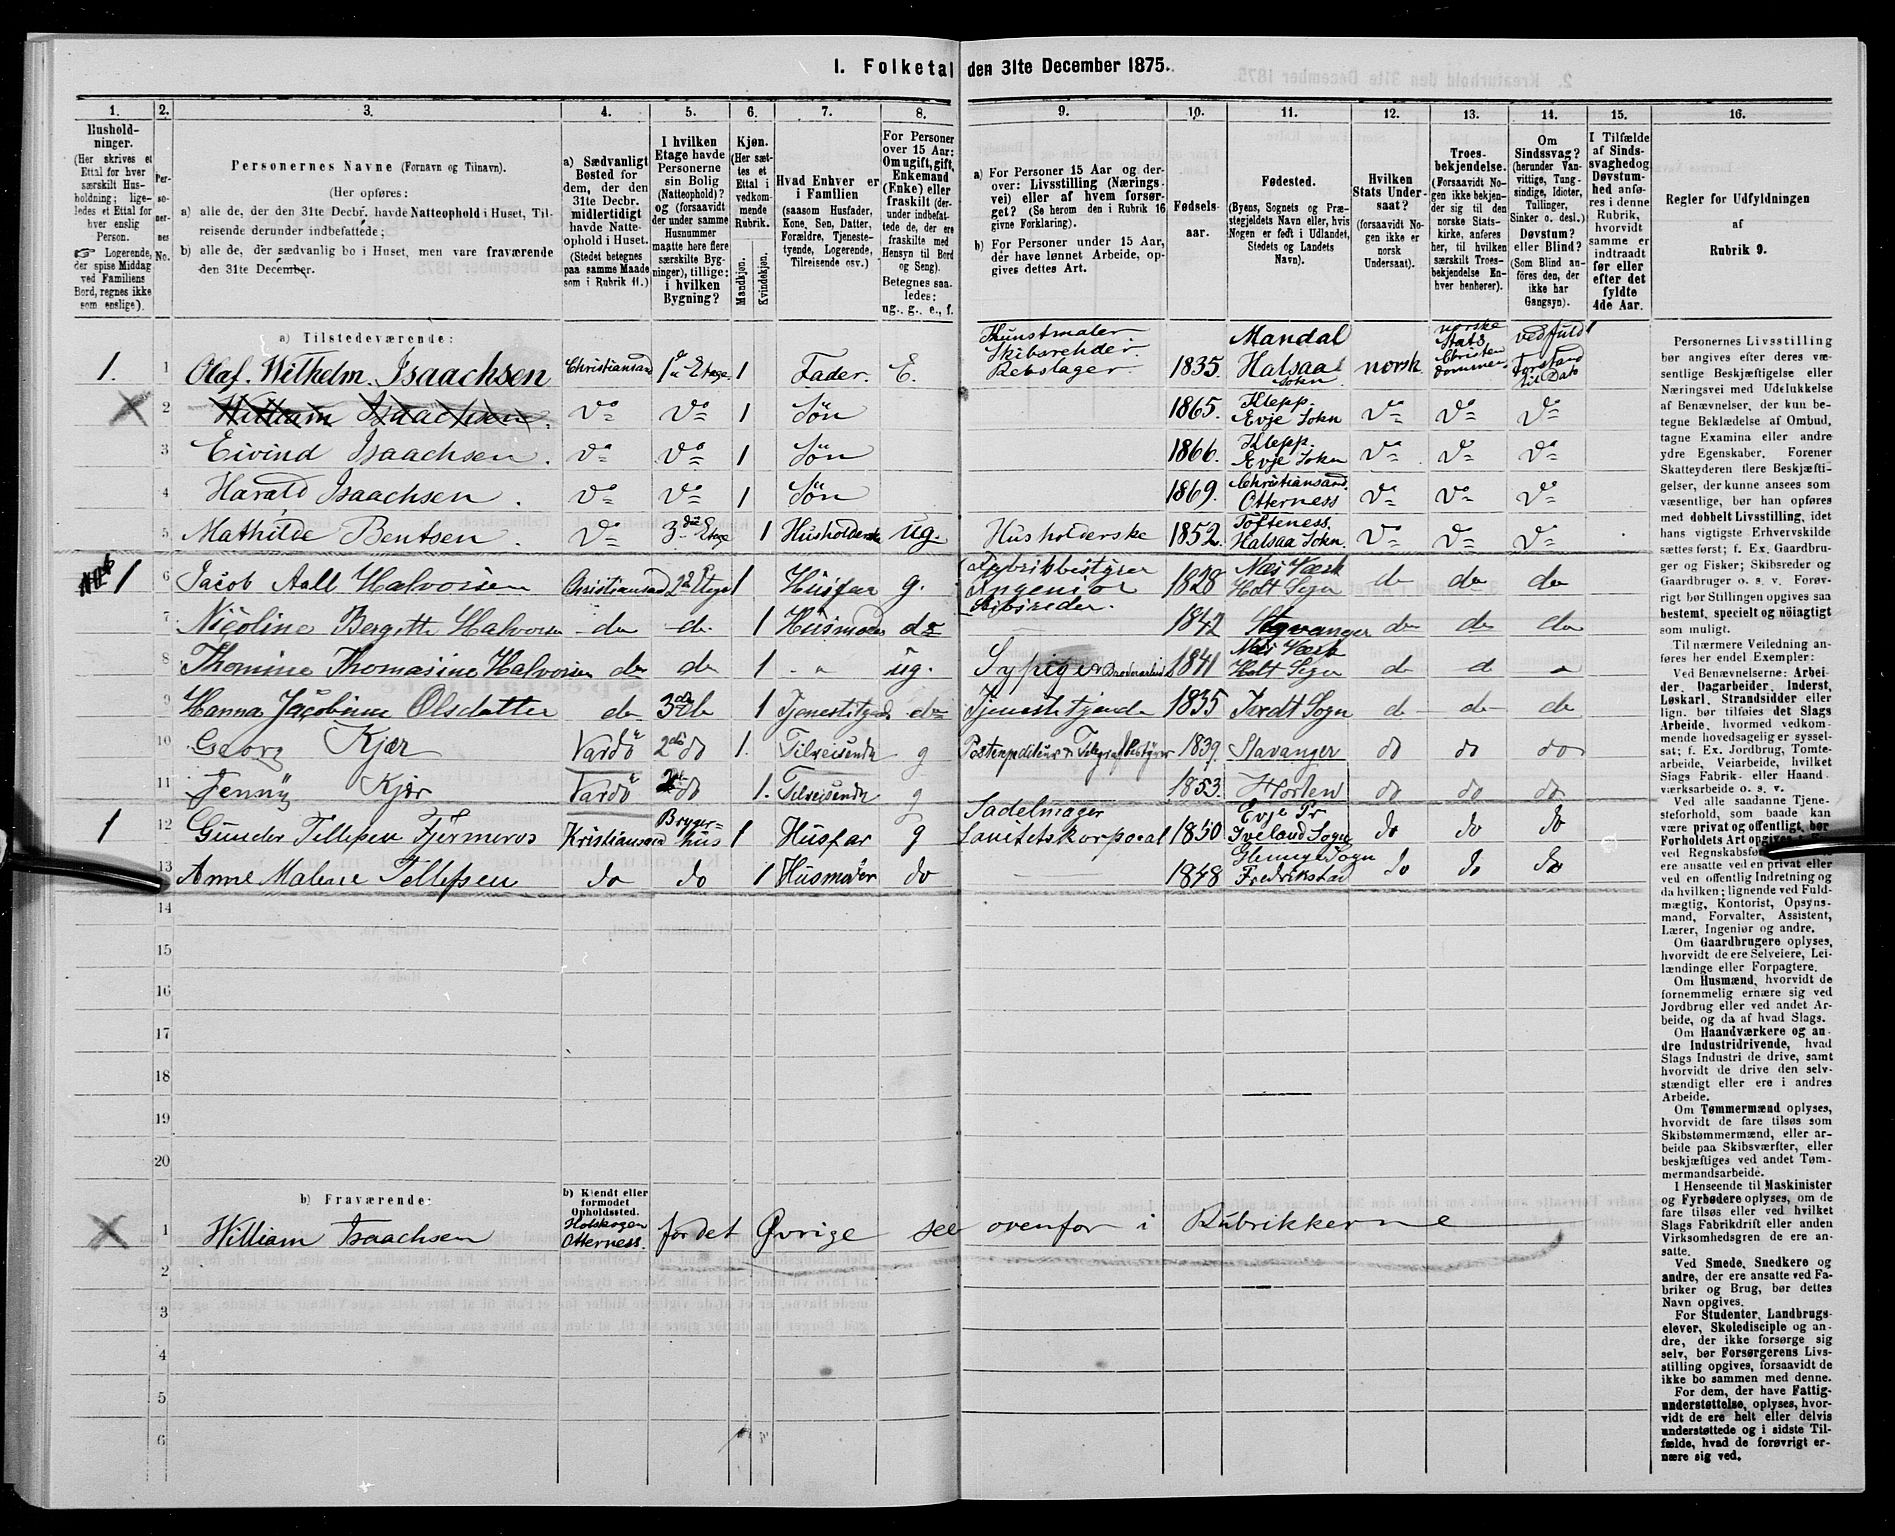 1. Folketal den 31te December 1875.
1. 2. 3. 4. 5. 6. 7. 8. 9. 10. 11. 12. 13. 14. 15. 16.
Hushold-
ninger.
(Her skrives et
Ettal for hver
særskilt Hus-
holdning; lige-
ledes et Ettal for
hver enslig
Person.
Logerende,
der spise Middag
ved Familiens
Bord, regnes ikke
som enslige).
Per-
so-
ner-
nes
No.
Personernes Navne (Fornavn og Tilnavn).
(Her opføres:
a) alle de, der den 31te Decbr. havde Natteophold i Huset, Til-
reisende derunder indbefattede;
b) alle de, der sædvanlig bo i Huset, men vare fraværende
den 31te December.
a) Sædvanligt
Bosted for
dem, der den
31te Decbr.
midlertidigt
havde Natte-
ophold i Huset.
(Stedet betegnes
paa samme Maade
som i Rubrik 11.)
I hvilken
Etage havde
Personerne
sin Bolig
(Natteophold)?
og (forsaavidt
der under samme
Husnummer
maatte høre flere
særskilte Byg-
ninger), tillige:
i hvilken
Bygning?
Kjøn.
(Her sæt-
tes et
Ettal i
vedkom-
mende
Rubrik.
Mandkjøn.
Kvindekjøn.
Hvad Enhver er
i Familien
(saasom Husfader,
Kone, Søn, Datter,
Forældre, Tjeneste-
tyende, Logerende,
Tilreisende osv.)
For Personer
over 15 Aar:
Om ugift, gift,
Enkemand
(Enke) eller
fraskilt (der-
under indbefat-
tede de, der ere
fraskilte med
Hensyn til Bord
og Seng).
Betegnes saa-
ledes:
ug., g., e., f.
a) For Personer 15 Aar og der-
over: Livsstilling (Nærings-
vei) eller af hvem forsør-
get? (Se herom den i Rubrik 16
givne Forklaring).
b) For Personer under 15 Aar,
der have lønnet Arbeide, op-
gives dettes Art.
Fødsels-
aar.
Fødested.
(Byens, Sognets og Præ-
stegjeldets Navn eller, hvis
Nogen er født i Udlandet,
Stedets og Landets
Navn).
Hvilken
Stats Under-
saat?
(forsaavidt No-
gen ikke er
norsk
Undersaat).
Troes-
bekjendelse.
(Forsaavidt No-
gen ikke beken-
der sig til den
norske Stats-
kirke, anføres
her, til hvilken
særskilt Troes-
bekjendelse En-
hver henhører).
Om
Sindssvag?
(herunder Van-
vittige, Tung-
sindige, Idioter,
Tullinger,
Sinker o. desl.)
Døvstum?
eller Blind?
(Som Blind an-
føres den, der
ikke har
Gangsyn).
I Tilfælde
af Sinds-
svaghed og
Døvstum-
hed anfø-
res i denne
Rubrik,
hvorvidt
samme er
indtraadt
før eller
efter det
fyldte
4de Aar.
Regler for Udfyldningen
af
Rubrik 9.
a) Tilstedeværende:
1. 1 Olaf Wilhelm Isaachsen Christiansand 1ste Etage 1 Fader. E. Kunstmaler Skibsrehder. Rebslager 1835. Mandal Halsaa Sokn norsk norske Stats Christendommen ved fuld Forstand til Dato
2 William Isaachsen. Do Do 1 Søn 1865. Klepp. Evje Sokn Do Do Do
3 Eivind Isaachsen. Do Do 1 Søn 1866. Klepp. Evje Sokn Do Do Do
4 Harald Isaachsen. Do Do 1 Søn 1869. Christiansand. Otterness Do Do Do
5 Mathilde Bentsen. Do 3die Etage 1 Husholderske ug. Husholderske 1852. Tofteness. Halsaa Sokn. Do Do Do
1 6 Jacob Aall Halvorsen Christiansand 2d Etage 1 Husfar g. Fabrikbestyrer Ingeniør Skibsreder. 1828 Næs Værk Holt Sogn do do do
7 Nicoline Bergitte Halvorsen do do 1 Husmoder do 1842 Stavanger do do do
8 Thomine Thomasine Halvorsen do do 1 " ug. Sypige 1841 Næs Værk Holt Sogn do d "
9 Hanna Jacobine Olsdatter do 3die do 1 Tjenestetyende do Tjenestetyende 1835 Sogn do do do
10 Georg Kjær Vardö 2den do 1. Tilreisende g Postexpeditør & Telegrafbestyrer 1839. Stavanger do do do
11 Jenny Kjær Vardö do 1. Tilreisende g 1853. Horten do do do
1 12 Gunder Tellefsen Fjermeros Kristiansand Bryger- hus 1 Husfar g Sadelmager Sanitetskorporal 1850 Evje Pr Iveland Sogn do do do
13 Anne Malene Tellefsen do do 1 Husmoder do — 1848 Glemmge Sogn Fredrikstad do do do
14
15
16
17
18
19
20
b) Fraværende:
b) Kjendt eller
formodet
Opholdssted.
1 William Isaachsen Otterness. for det Øvrige see ovenfor i Rubrikkerne
2
3
4
5
6
Personernes Livsstilling
bør angives efter deres væ-
sentlige Beskjæftigelse eller
Næringsvei med Udelukkelse
af Benævnelser, der kun be-
tegne Beklædelse af Ombud,
tagne Examina eller andre
ydre Egenskaber. Forener
Skatteyderen flere Beskjæfti-
gelser, der kunne ansees som
væsentlige, bør han opføres
med dobbelt Livsstilling, idet
hans vigtigste Erhvervskilde
sættes først; f. Ex. Gaardbru-
ger og Fisker; Skibsreder og
Gaardbruger o. s. v. Forøv-
rigt bør Stillingen opgives saa
bestemt, specielt og nöiagtigt
som muligt.
Til nærmere Veiledning an-
føres her endel Exempler:
Ved Benævnelserne: Arbei-
der, Dagarbeider, Inderst,
Løskarl, Strandsidder eller
lign. bør tilføies det Slags
Arbeide, hvormed vedkom-
mende hovedsagelig er syssel-
sat; f. Ex. Jordbrug, Tomte-
arbeide, Veiarbeide, hvilket
Slags Fabrik- eller Haand-
værksarbeide o. s. v.
Ved alle saadanne Tjene-
steforhold, som baade kan
være privat og offentlig, bør
Forholdets Art opgives
ved Regnskabsfø
ere ansatte ved en privat eller
ved en offentlig Indretning og
da hvilken; lignende ved Fuld-
mægtig, Kontorist, Opsyns-
mand, Forvalter, Assistent,
Lærer, Ingeniør og andre.
Om Gaardbrugere oplyses,
hvorvidt de ere Selveiere, Lei-
lændinge eller Forpagtere.
Om Husmænd, hvorvidt de
fornemmelig ernære sig ved
Jordbrug eller ved andet Ar-
beide, og da af hvad Slags.
Om Haandværkere og an-
dre Industridrivende, hvad
Slags Industri de drive, samt
hvorvidt de drive den selv-
stændigt eller ere i andres
Arbeide.
Om Tømmermænd oplyses,
hvorvidt de fare tilsøs som
Skibstømmermænd, eller ar-
beide paa Skibsværfter, eller
beskjæftiges ved andet Tøm-
mermandsarbeide.
I Henseende til Maskinister
og Fyrbødere oplyses, om de
fare tilsøs eller ved hvilket
Slags Fabrikdrift eller anden
Virksomhedsgren de ere an-
satte.
Ved Smede, Snedkere og
andre, der ere ansatte ved Fa-
briker og Brug, bør dettes
Navn opgives.
For Studenter, Landbrugs-
elever, Skoledisciple og an-
dre, der ikke forsørge sig
selv, bør Forsørgerens Livs-
stilling opgives, forsaavidt de
ikke bo sammen med denne.
For dem, der have Fattig-
understøttelse, oplyses, hvor-
vidt de ere helt eller delvis
understøttede og i sidste Til-
fælde, hvad de forøvrigt er-
nære sig ved.